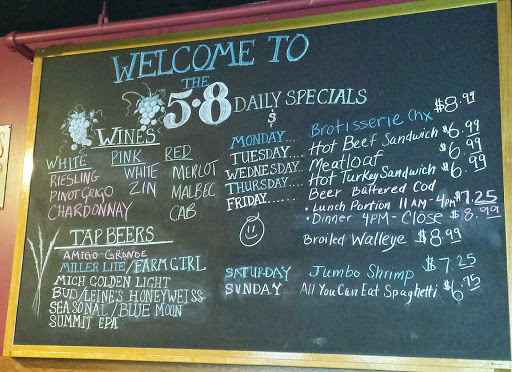 WELCOME TO
THE
5·8 DAILY SPECIALS
$
WINES
WHITE PINK RED
RIESLING WHITE MERLOT
PINOT GRIGO ZIN MALBEC
CHARDONNAY CAB
TAP BEERS
AMIGO GRANDE
MILLER LITE/FARM GIRL
MICH GOLDEN LIGHT
BUD/LEINE'S HONEYWEISS
SEASONAL/BLUE MOON
SUMMIT EPA
MONDAY.... Brotisserie Chx $8.99
TUESDAY.... Hot Beef Sandwich $6.99
WEDNESDAY... Meatloaf $6.99
THURSDAY.... Hot Turkey Sandwich $6.99
FRIDAY..... Beer Battered Cod
• Lunch Portion 11 AM - 4PM $7.25
• Dinner 4PM - Close $8.99
Broiled Walleye $8.99
SATURDAY Jumbo Shrimp $7.25
SUNDAY.... All You Can Eat Spaghetti $6.75